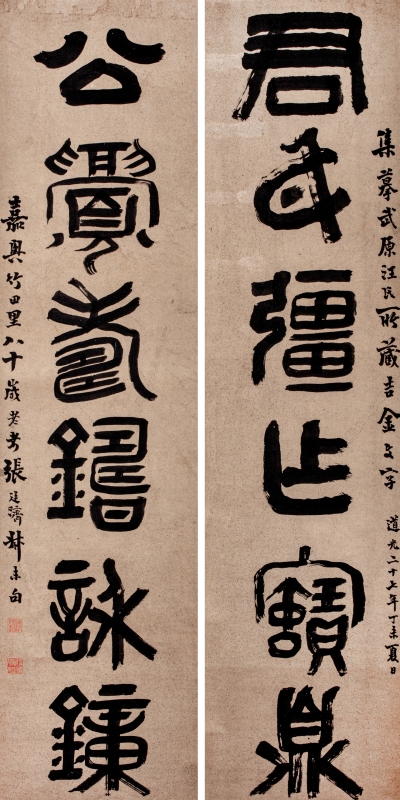 君彊乍寶鼎
集摹武原汪氏所藏吉金文字 道光二十七年丁未夏日
公釁壽鑄詠鐘
嘉興竹田里八十歲老者張廷濟叔未